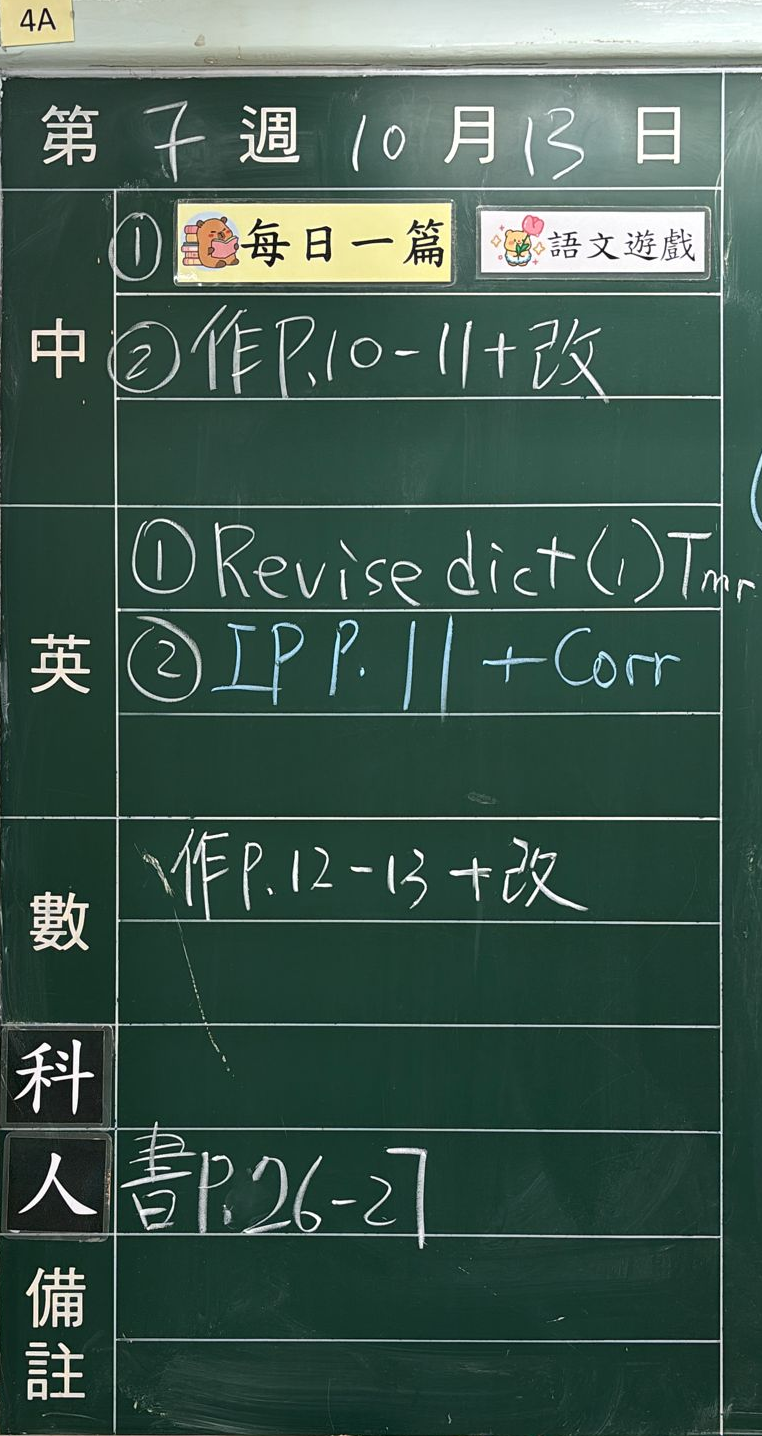 4A
第 7 週 10 月 13 日
中
① 每日一篇 語文遊戲
② 作P.10-11+改
英
① Revise dict (1) Tmr
② IP P. 11 + Corr
數
作P.12-13+改
科
人
書P.26-27
備註